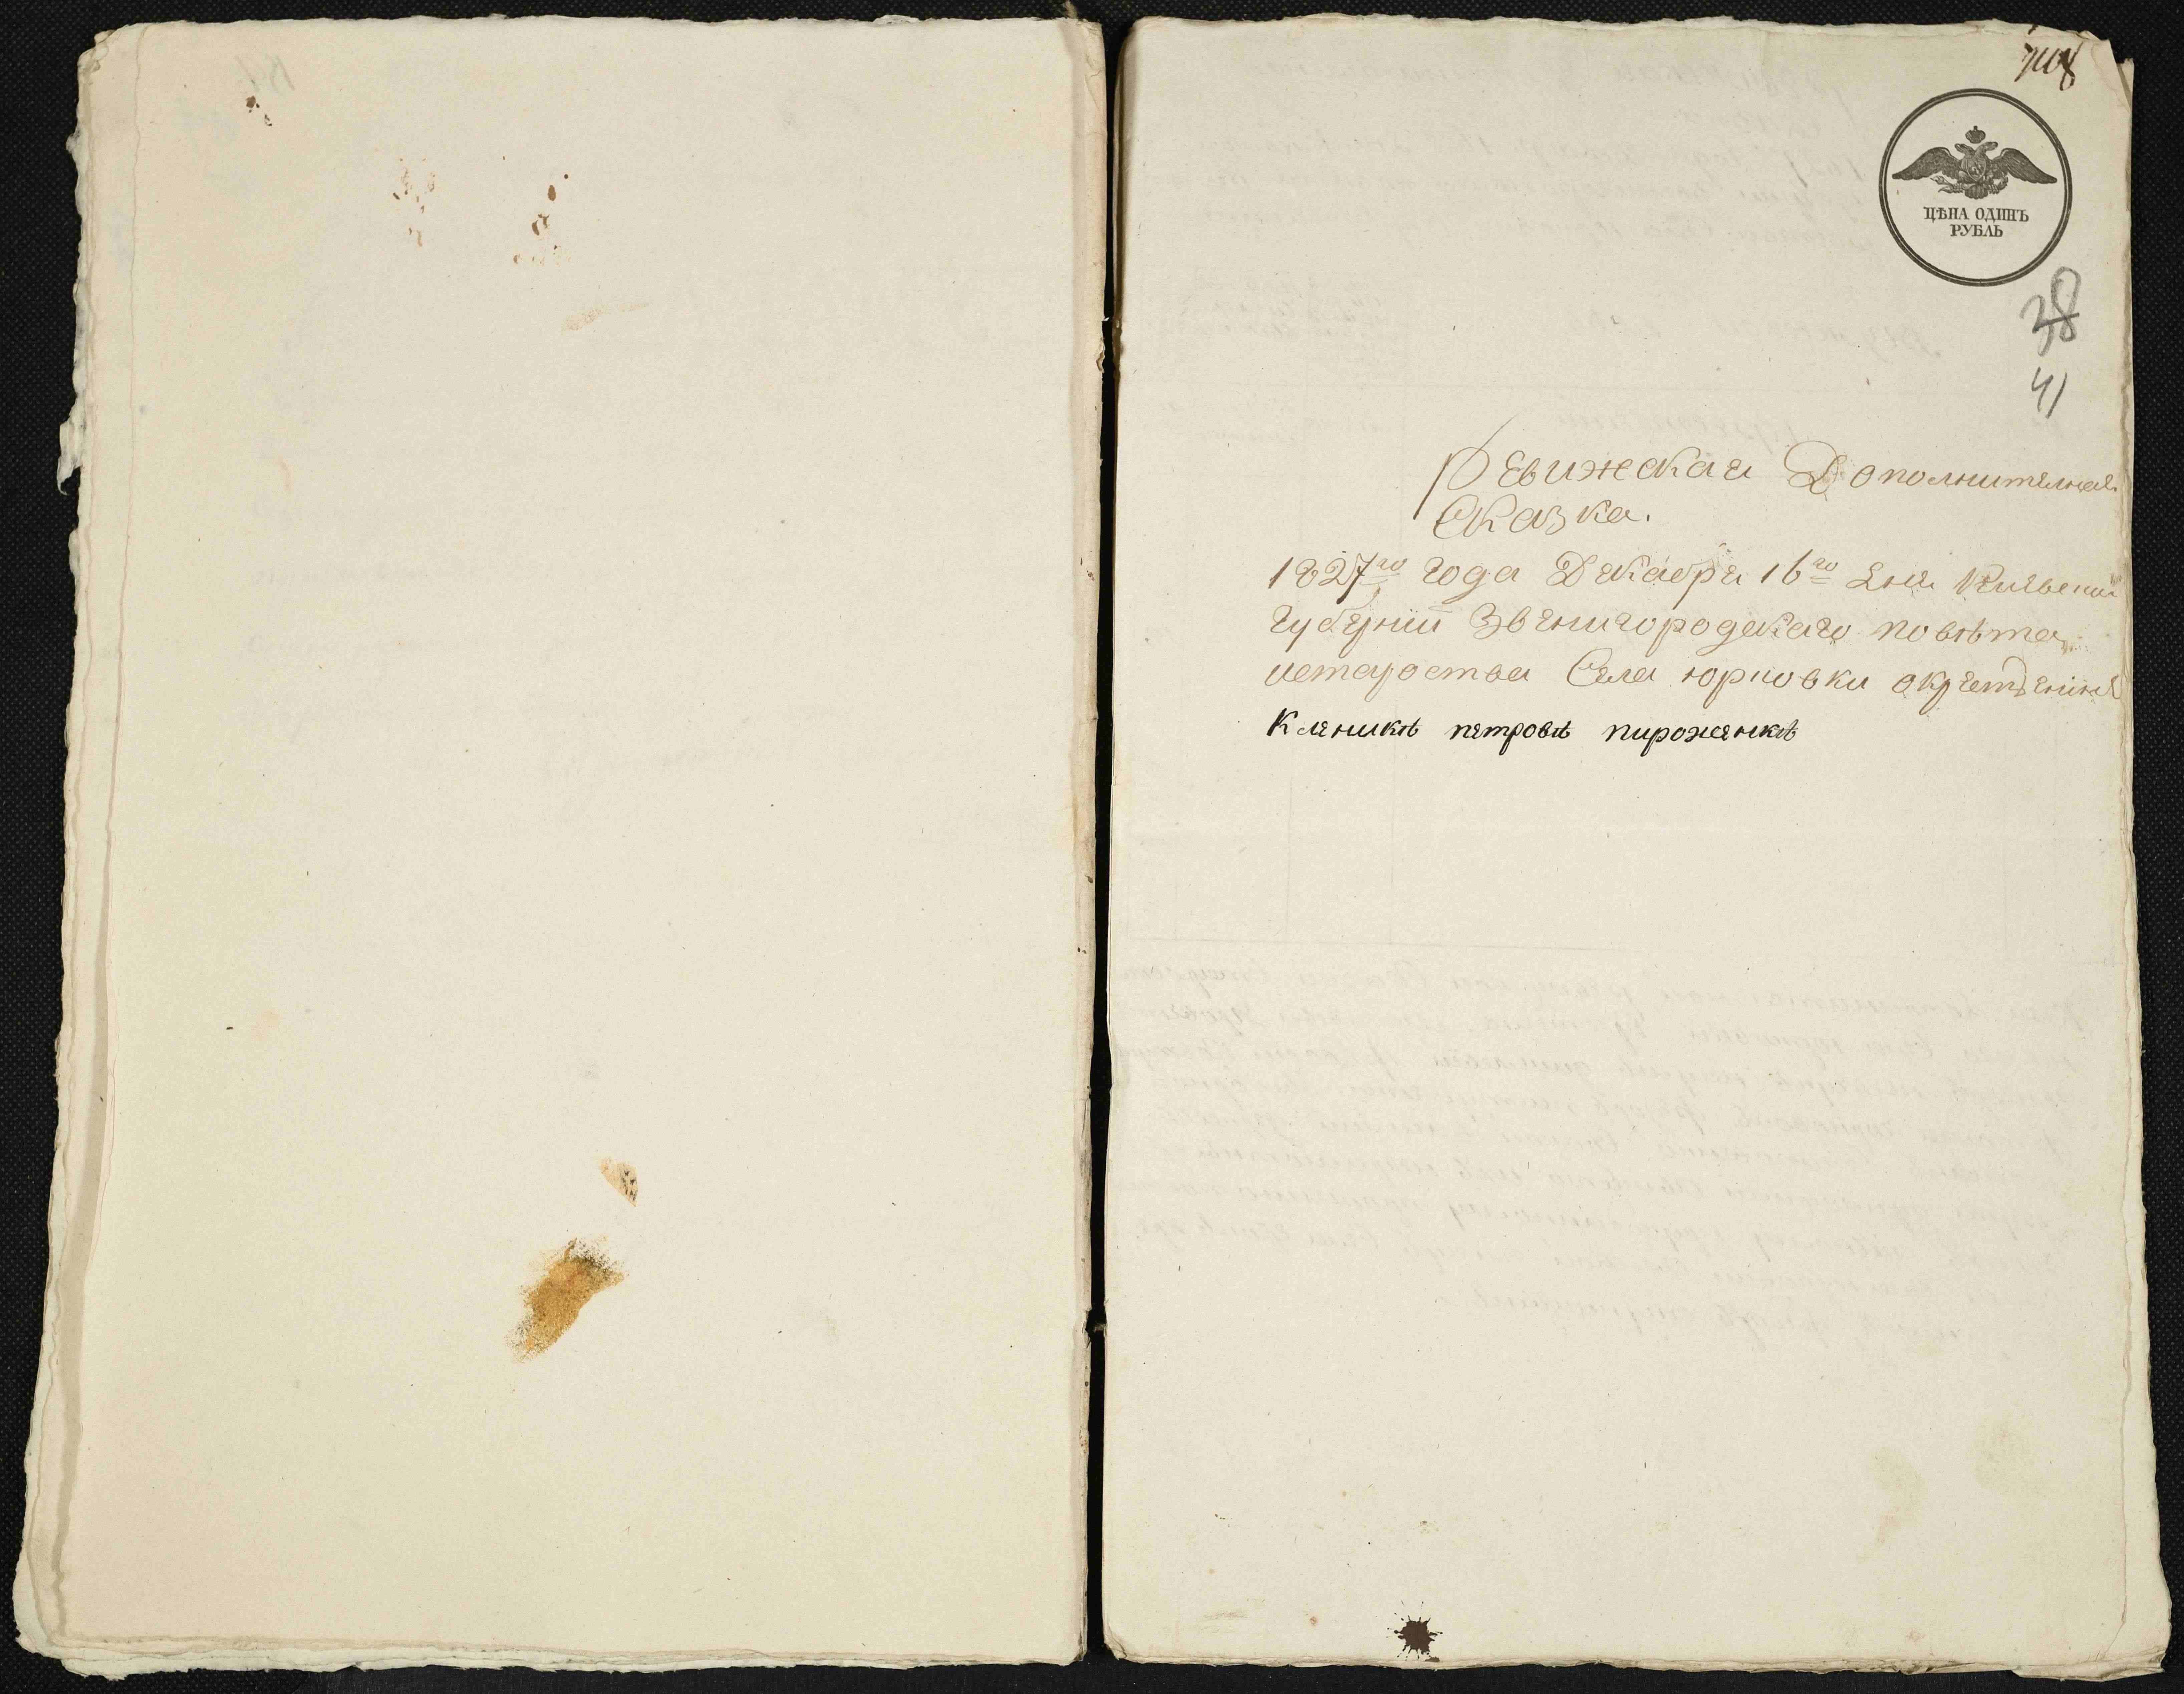 708
ЦѢНА ОДИНЪ
РУБЛЬ
38
41
Ревижская Дополнителная
Сказка.
1827го года Декабря 16го дня Киевской
губернии Звенигородскаго повѣта
истароства Села юрповки
Кленикѣ петровѣ пироженкѣ